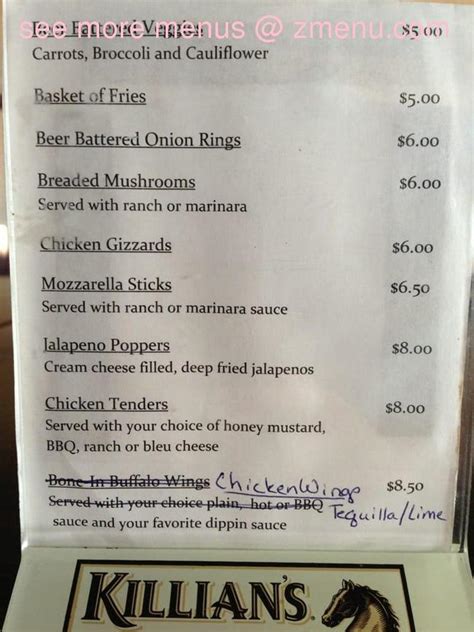 see more menus @ zmenu.com
Beer Battered Veggies $5.00
Carrots, Broccoli and Cauliflower
Basket of Fries $5.00
Beer Battered Onion Rings $6.00
Breaded Mushrooms $6.00
Served with ranch or marinara
Chicken Gizzards $6.00
Mozzarella Sticks $6.50
Served with ranch or marinara sauce
Jalapeno Poppers $8.00
Cream cheese filled, deep fried jalapenos
Chicken Tenders $8.00
Served with your choice of honey mustard,
BBQ, ranch or bleu cheese
Bone-In Buffalo Wings Chicken Wings $8.50
Served with your choice plain, hot or BBQ Tequilla/Lime
sauce and your favorite dippin sauce
KILLIAN'S